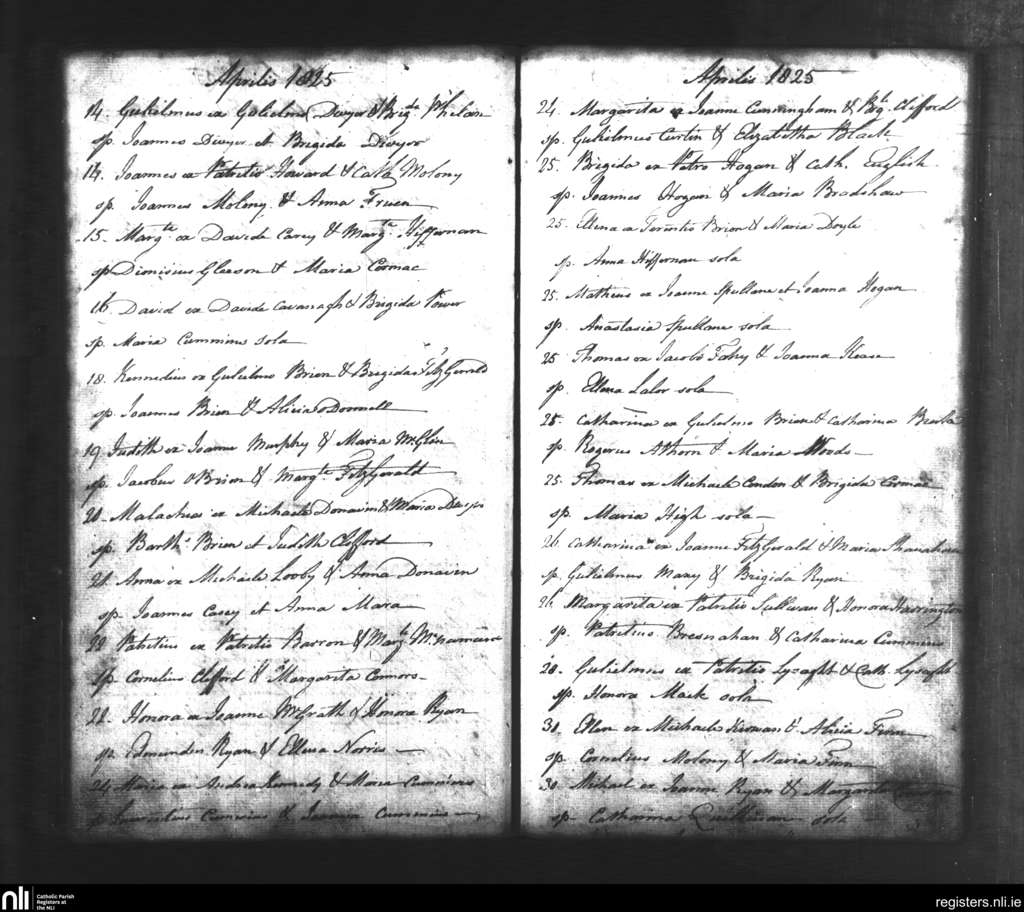 Aprilis 1825
14. Gulielmus ex Gulielmo Dwyer & Brigte Phelan
sp. Joannes Dwyer et Brigida Dwyer
14. Joannes ex Patritio Havard & Cath Molony
sp. Joannes Molony & Anna Fruen
15. Margte ex Davide Carey & Margte Hiffernan
sp Dionisius Gleason & Maria Cormac
16 David ex Davide Cavanagh & Brigida Power
sp. Maria Cummins sola
18. Kennedius ex Gulielmo Brien & Brigida FitzGerald
sp. Joannes Brien & Alicia oDonnell
19 Judith ex Joanne Murphy & Maria McGlin
sp. Jacobus O'Brien & Margte FitzGerald
20. Malachius ex Michaele Donavin & Maria Dwyer
sp. Barths Brien et Judith Clifford
21. Anna ex Michaele Looby & Anna Donaven
sp. Joannes Casey et Anna Mara
22 Patritius ex Patritio Barron & Margte McNamara
sp. Cornelius Clifford & Margarita Connors
22. Honora ex Joanne McGrath & Honora Ryan
sp. Edmundus Ryan & Ellena Norris
24 Maria ex Andrea Kennedy & Maria Cummins
Cummins & Joanna Cummins
Aprilis 1825
24. Margarita ex Joanne Cunningham & Brigte Clifford
sp. Gulielmus Curtin & Elizabetha Black
25. Brigida ex Petro Hogan & Cath. English
sp. Joannes Hogan & Maria Bradshaw
25. Ellena ex Terentio Brien & Maria Doyle
sp. Anna Hiffernan sola
25. Matheus ex Joanne Spullane et Joanna Hogan
sp. Anastasia Spullane sola
25 Thomas ex Jacobo Fahy & Joanna Kease
sp. Ellena Lalor sola
25. Catharina ex Gulielmo Brien & Catharina Burke
sp. Rogerus Ahorn & Maria Woods
25. Thomas ex Michaele Condon & Brigida Cormac
sp. Maria High sola
26. Catharina ex Joanne FitzGerald & Maria Shanahan
sp. Gulielmus Many & Brigida Ryan
26. Margarita ex Patritio Sullivan & Honora Harrington
sp. Patritius Bresnahan & Catharina Cummins
28. Gulielmus ex Patritio Lysaght & Cath. Lysaght
sp. Honora Mack sola
30. Ellen ex Michaele Kirwan & Alicia Finn
sp. Cornelius Molony & Maria Finn
30 Michael ex Joanne Ryan & Margarita
sp. Catharina Quillinan sola
nli Catholic Parish Registers at the NLI
registers.nli.ie